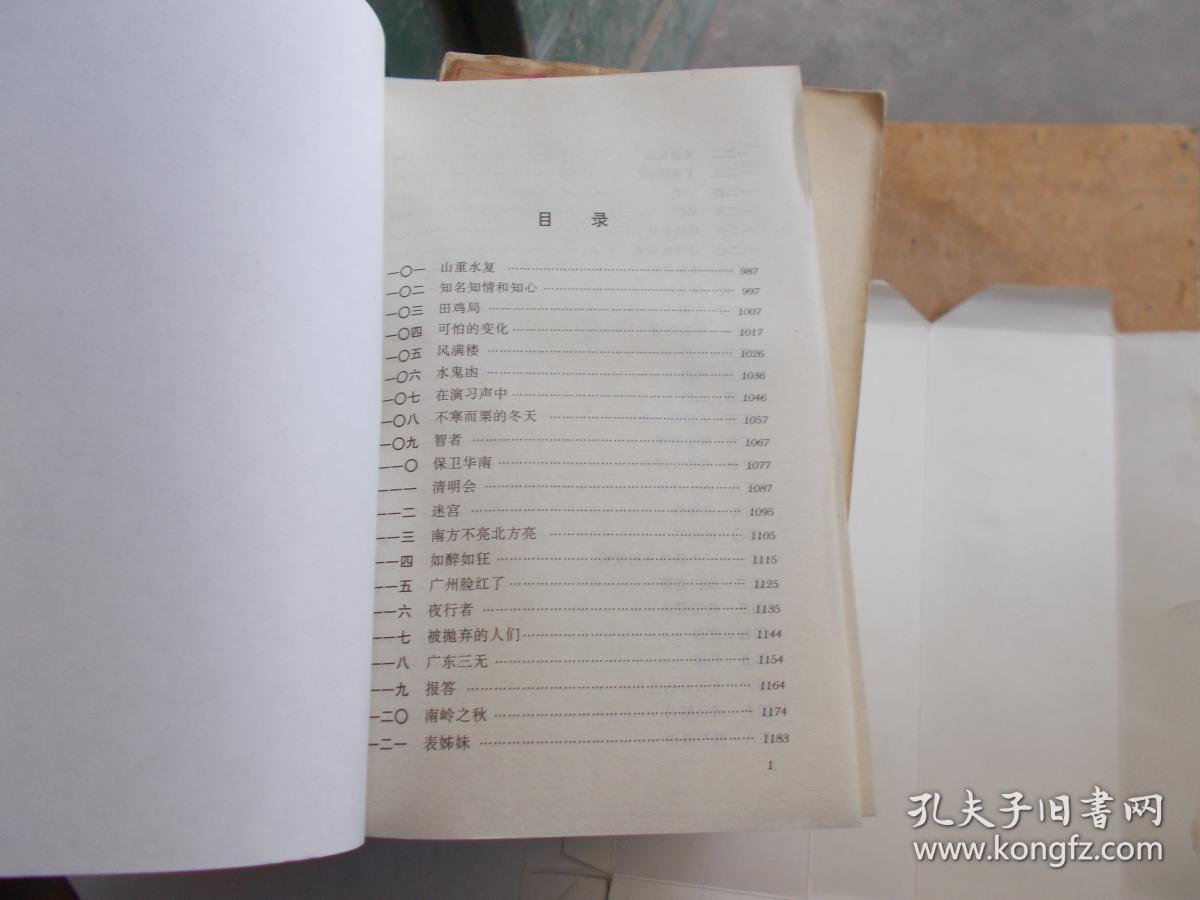 目 录
一〇一 山重水复 ……………… 987
一〇二 知名知情和知心 ……………… 997
一〇三 田鸡局 ……………… 1007
一〇四 可怕的变化 ……………… 1017
一〇五 风满楼 ……………… 1026
一〇六 水鬼凼 ……………… 1036
一〇七 在演习声中 ……………… 1046
一〇八 不寒而栗的冬天 ……………… 1057
一〇九 智者 ……………… 1067
一一〇 保卫华南 ……………… 1077
一一一 清明会 ……………… 1087
一一二 迷宫 ……………… 1095
一一三 南方不亮北方亮 ……………… 1105
一一四 如醉如狂 ……………… 1115
一一五 广州脸红了 ……………… 1125
一一六 夜行者 ……………… 1135
一一七 被抛弃的人们 ……………… 1144
一一八 广东三无 ……………… 1154
一一九 报答 ……………… 1164
一二〇 南岭之秋 ……………… 1174
一二一 表姊妹 ……………… 1183
1
孔夫子旧书网
www.kongfz.com